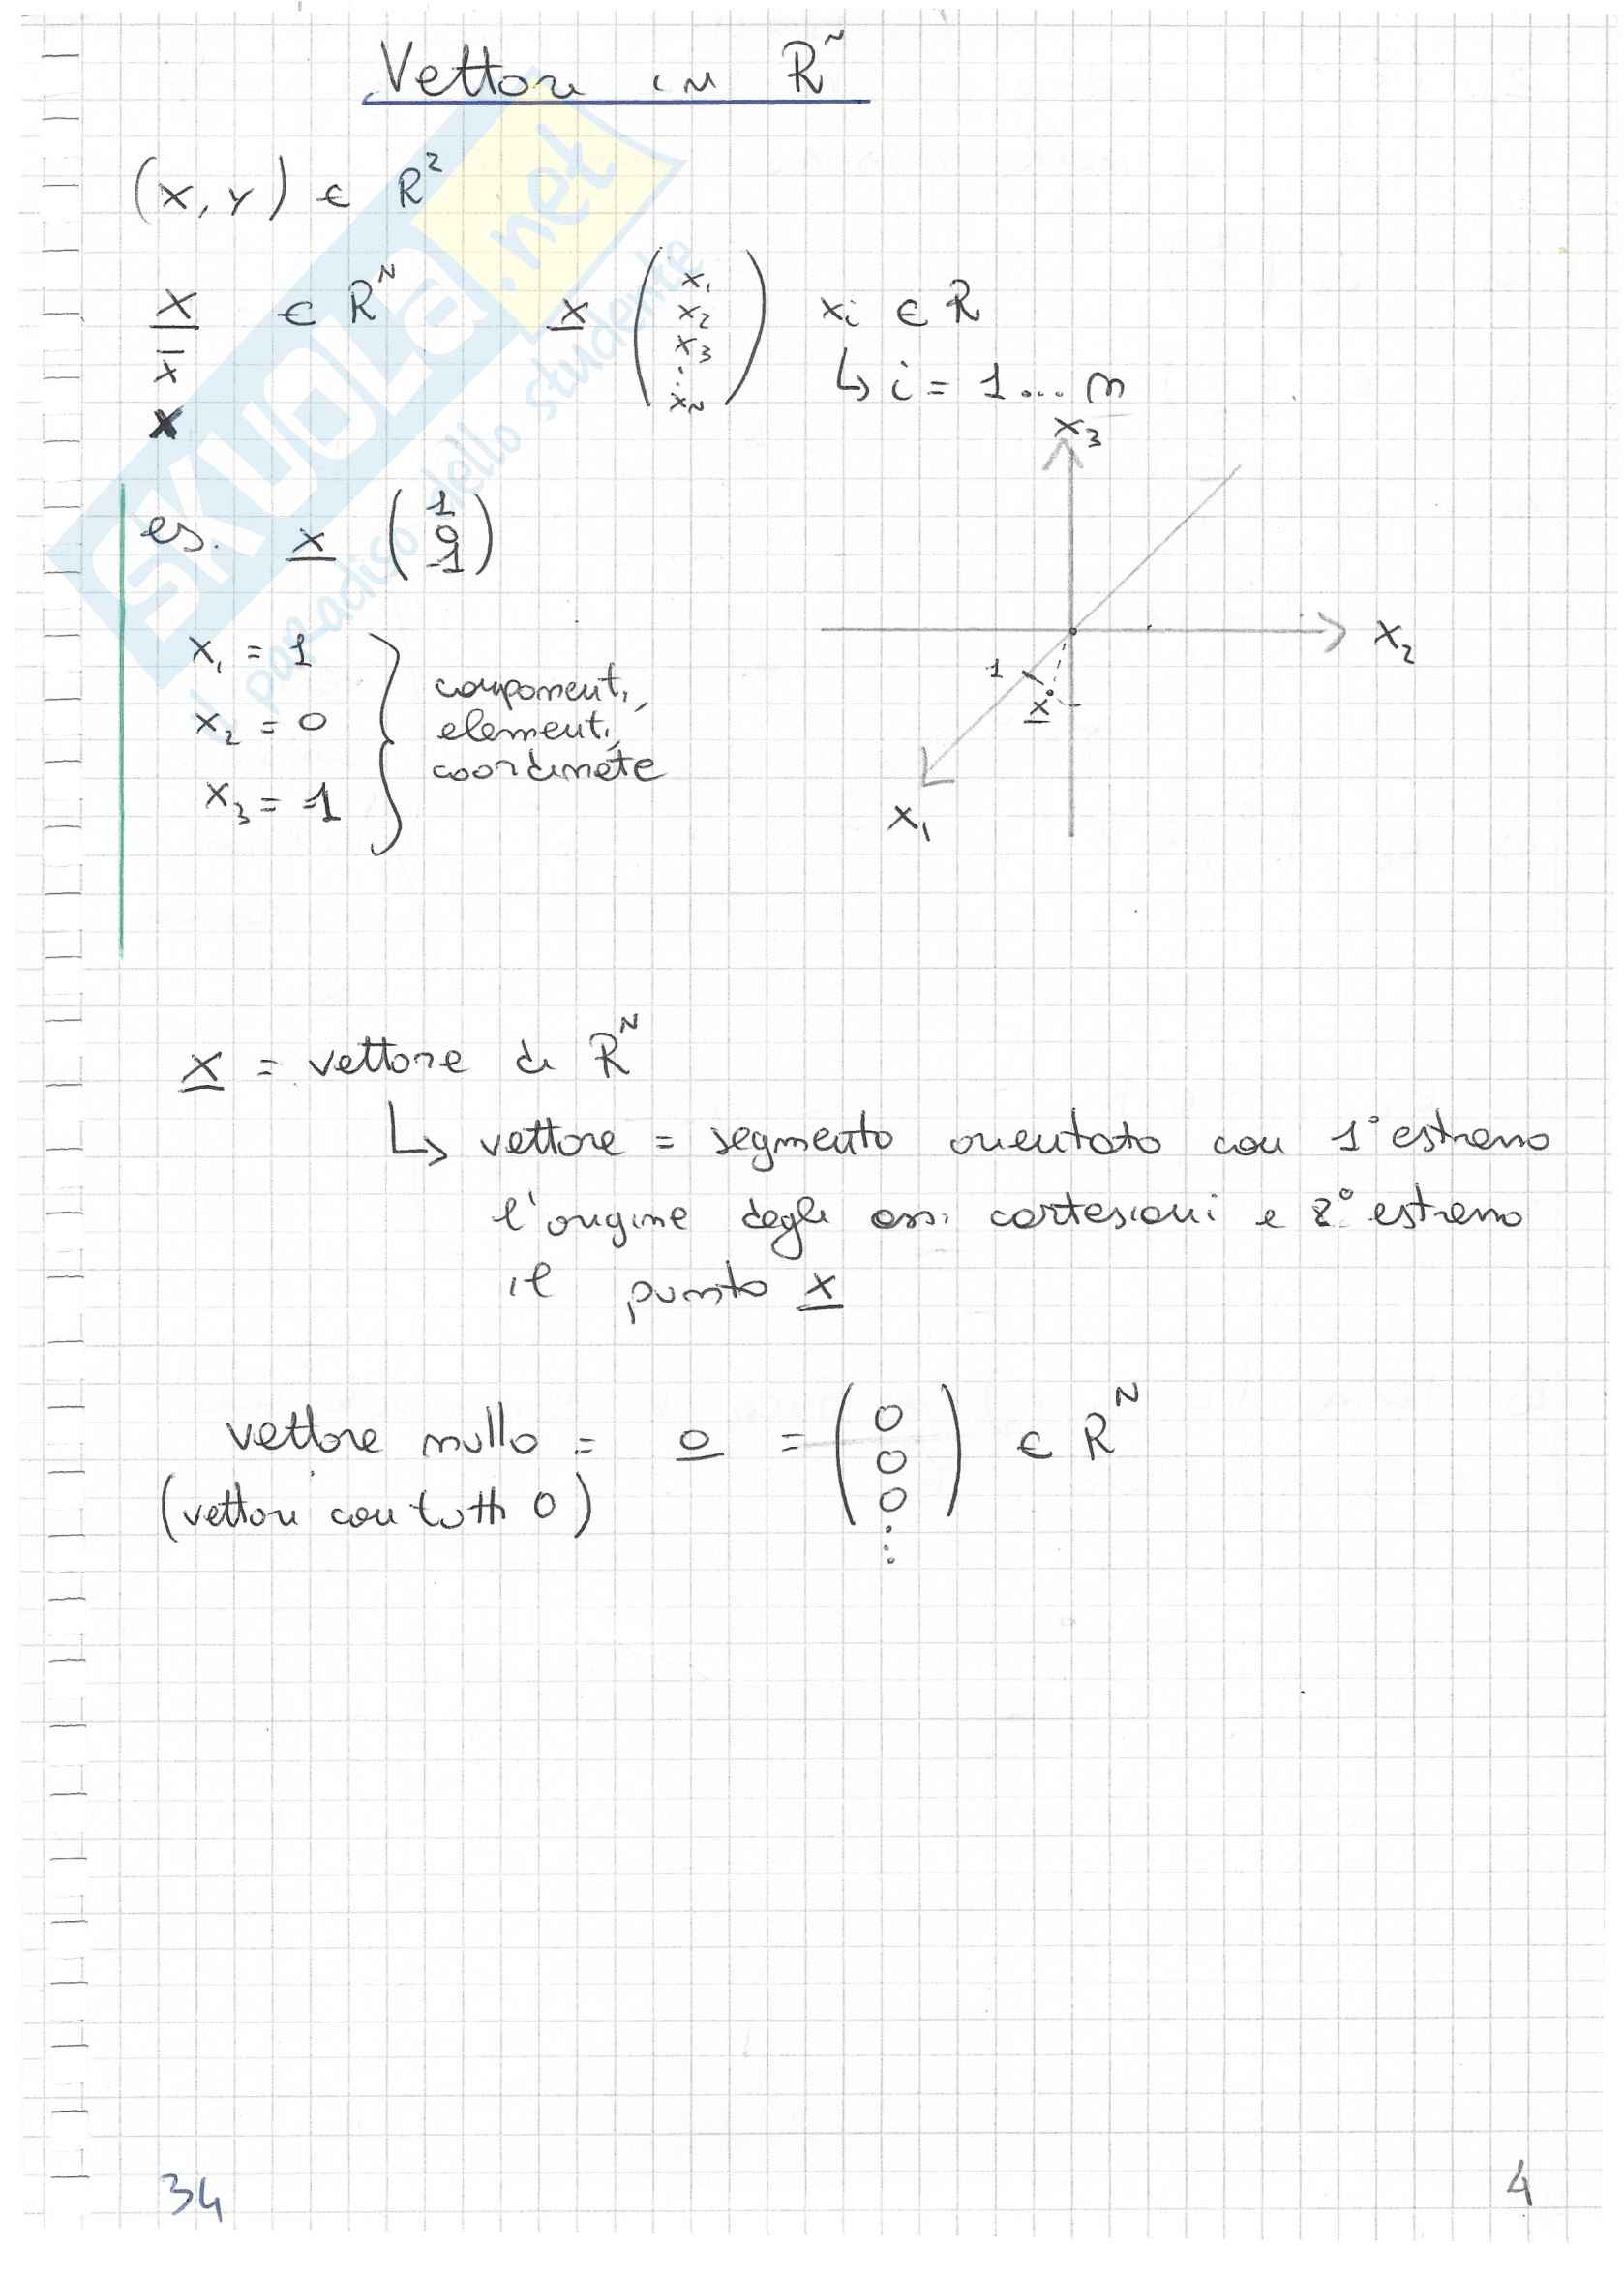 Vettori in R^N
(x, y) ∈ R²
x ∈ R^N
x̄
x
x ( x₁ x₂ x₃ ⋮ x_N ) xᵢ ∈ R
↳ i = 1 ... n
es. x ( 1 0 -1 )
x₁ = 1
x₂ = 0
x₃ = -1
componenti,
elementi,
coordinate
x₃
x₂
1
x
x₁
x = vettore di R^N
↳ vettore = segmento orientato con 1° estremo
l'origine degli assi cartesiani e 2° estremo
il punto x
vettore nullo = 0 = ( 0 0 0 ⋮ ) ∈ R^N
(vettori con tutti 0)
34
4
SKUOLA.net
il paradiso dello studente